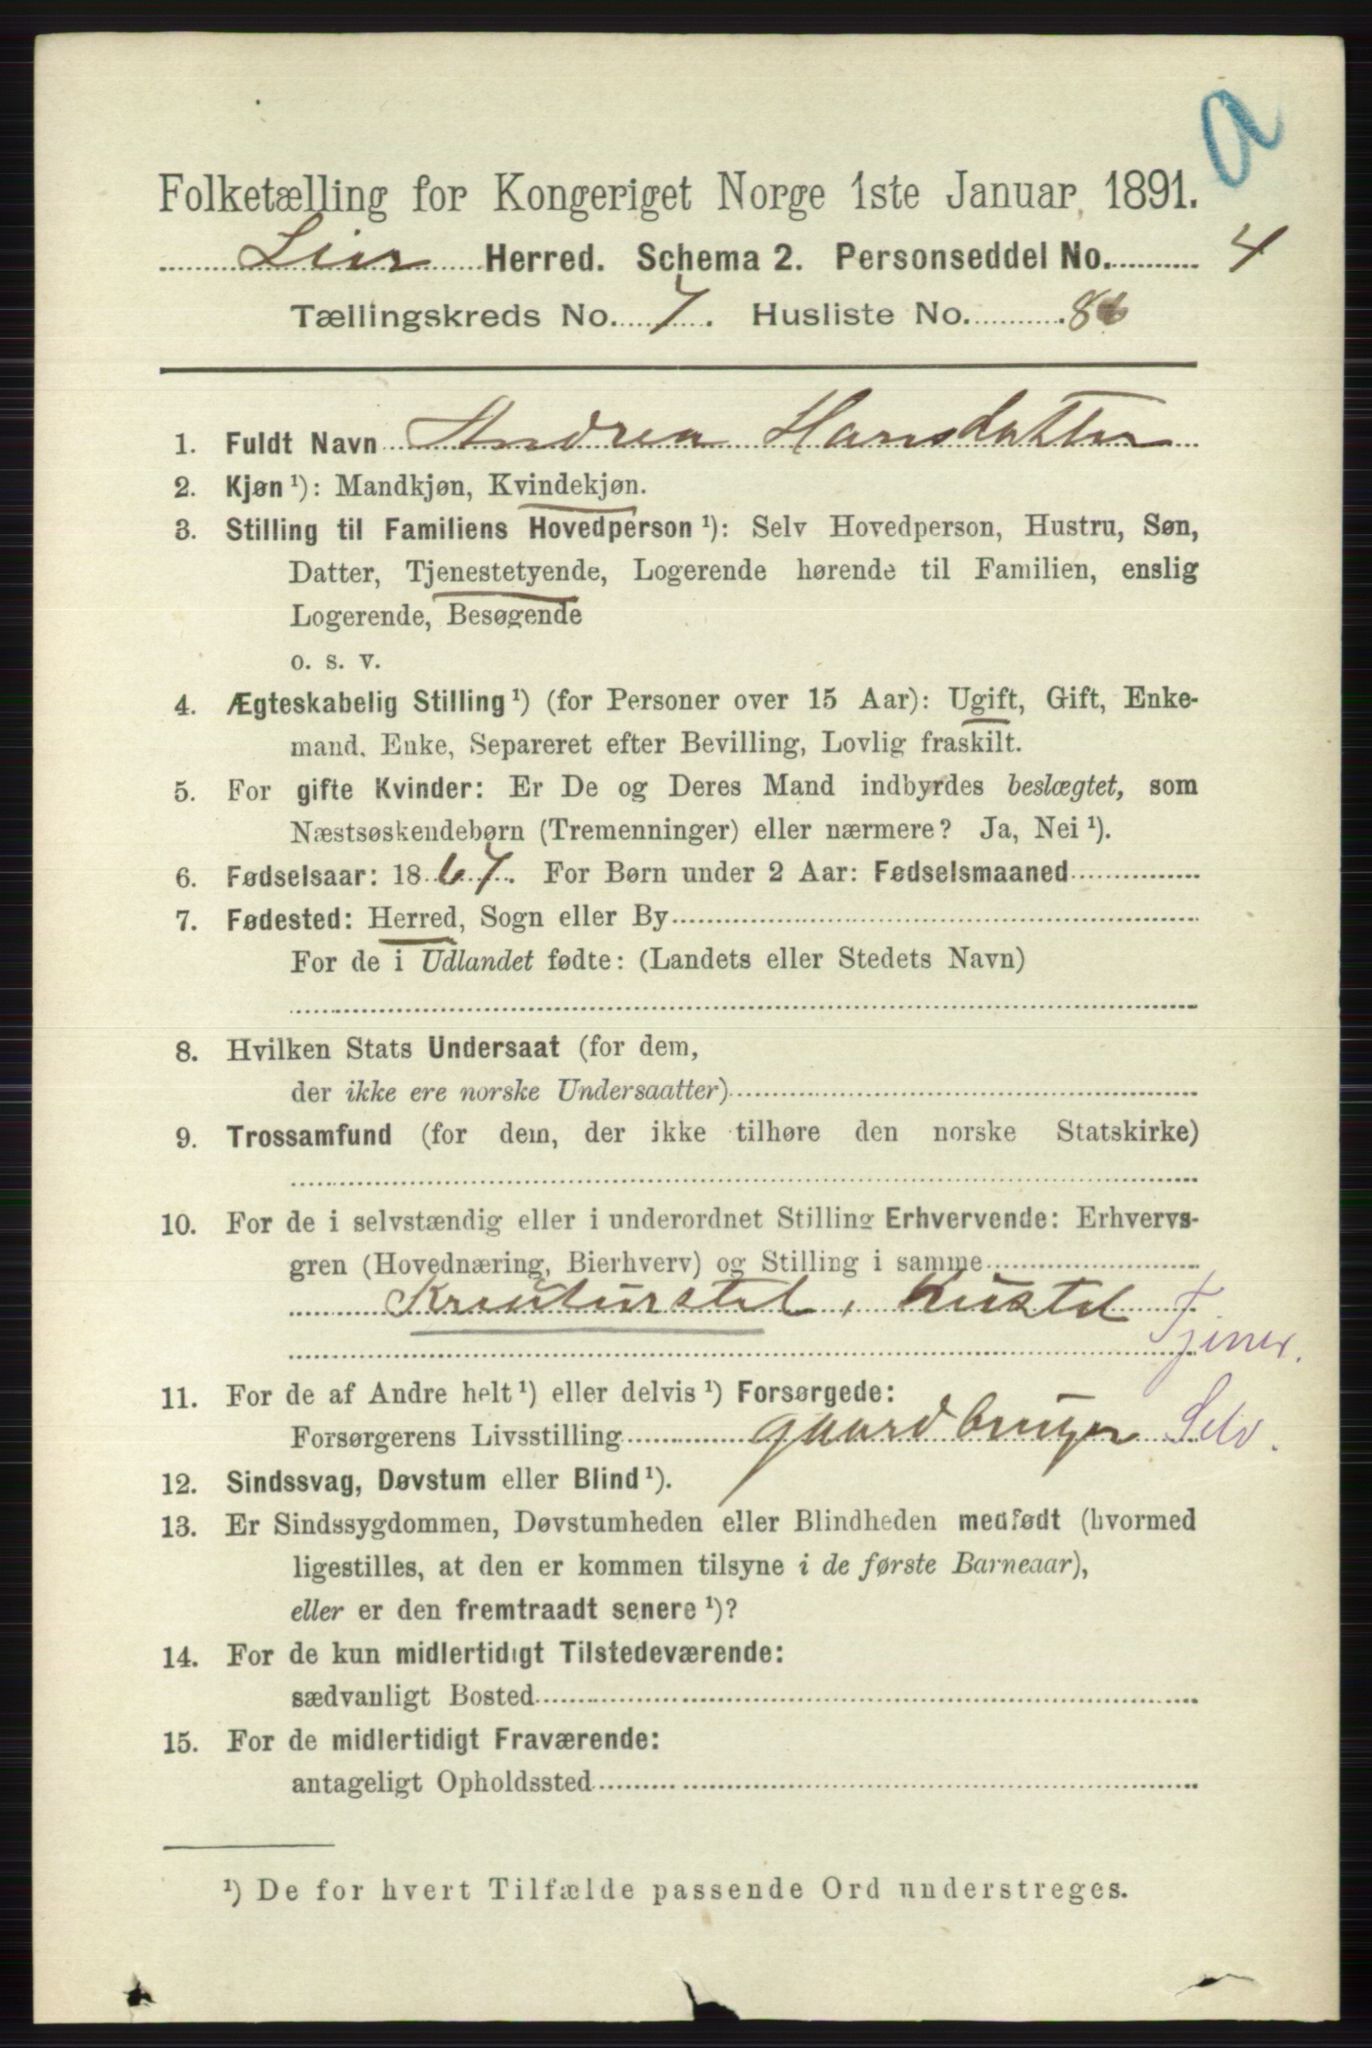 a
Folketælling for Kongeriget Norge 1ste Januar 1891.
Lier Herred. Schema 2. Personseddel No. 4
Tællingskreds No. 7. Husliste No. 86
1. Fuldt Navn Andrea Hansdatter
2. Kjøn ¹): Mandkjøn, Kvindekjøn.
3. Stilling til Familiens Hovedperson ¹): Selv Hovedperson, Hustru, Søn,
Datter, Tjenestetyende, Logerende hørende til Familien, enslig
Logerende, Besøgende
o. s. v.
4. Ægteskabelig Stilling ¹) (for Personer over 15 Aar): Ugift, Gift, Enke-
mand, Enke, Separeret efter Bevilling, Lovlig fraskilt.
5. For gifte Kvinder: Er De og Deres Mand indbyrdes beslægtet, som
Næstsøskendebørn (Tremenninger) eller nærmere? Ja, Nei ¹).
6. Fødselsaar: 1867. For Børn under 2 Aar: Fødselsmaaned
7. Fødested: Herred, Sogn eller By
For de i Udlandet fødte: (Landets eller Stedets Navn)
8. Hvilken Stats Undersaat (for dem,
der ikke ere norske Undersaatter)
9. Trossamfund (for dem, der ikke tilhøre den norske Statskirke)
10. For de i selvstændig eller i underordnet Stilling Erhvervende: Erhvervs-
gren (Hovednæring, Bierhverv) og Stilling i samme
Kreaturstel, Husstel
Tjener.
11. For de af Andre helt ¹) eller delvis ¹) Forsørgede:
Forsørgerens Livsstilling gaardbruger Selv.
12. Sindssvag, Døvstum eller Blind ¹).
13. Er Sindssygdommen, Døvstumheden eller Blindheden medfødt (hvormed
ligestilles, at den er kommen tilsyne i de første Barneaar),
eller er den fremtraadt senere ¹)?
14. For de kun midlertidigt Tilstedeværende:
sædvanligt Bosted
15. For de midlertidigt Fraværende:
antageligt Opholdssted
¹) De for hvert Tilfælde passende Ord understreges.